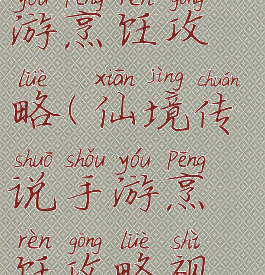 yóu pēng rèn gōng
游烹饪攻
lüè xiān jìng chuán
略(仙境传
shuō shǒu yóu pēng
说手游烹
rèn gōng lüè shì
饪攻略视